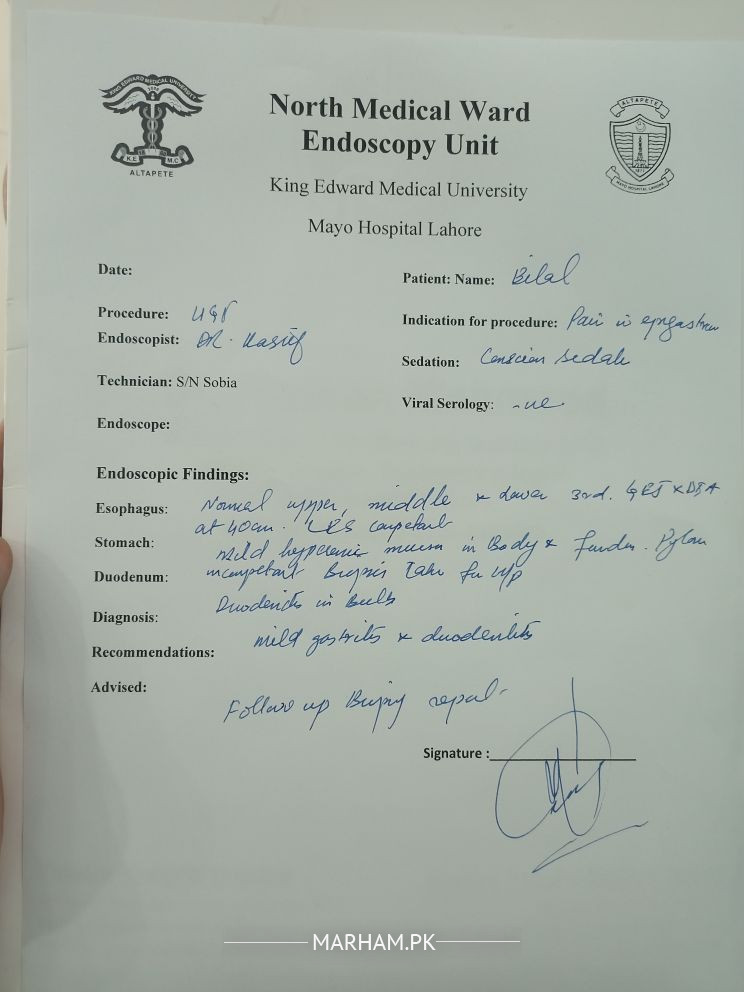 KING EDWARD MEDICAL UNIVERSITY
K.E M.C
ALTAPETE
North Medical Ward
Endoscopy Unit
King Edward Medical University
Mayo Hospital Lahore
ALTAPETE
MAYO HOSPITAL LAHORE
Date:
Patient: Name: Bilal
Procedure: UGI
Indication for procedure: Pain in
Endoscopist: DR. Kasif
Sedation: Conscious Sedate
Technician: S/N Sobia
Viral Serology: -ve
Endoscope:
Endoscopic Findings:
Esophagus: Normal upper, middle & Lower 3rd. GEJ
at 40cm. LES competent
Stomach: Mild hyperemic mucosa in Body & fundus. Pylorus
Duodenum: incompetent Biopsies taken for H/P
Duodenitis in Bulb
Diagnosis:
mild gastritis & duodenitis
Recommendations:
Advised:
Follow up Biopsy report
Signature :
MARHAM.PK